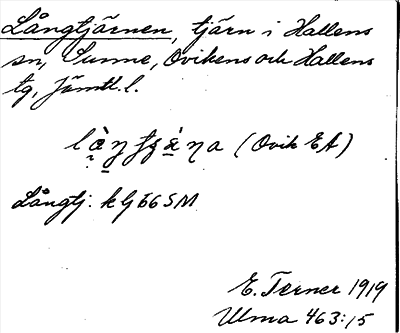 Långtjärnen, tjärn i Hallens
sn, Sunne, Ovikens och Hallens
tg, Jämtl. l.
(Ovik EA)
Långtj. k G 66 SM
E. Terner 1919
Ulma 463:15